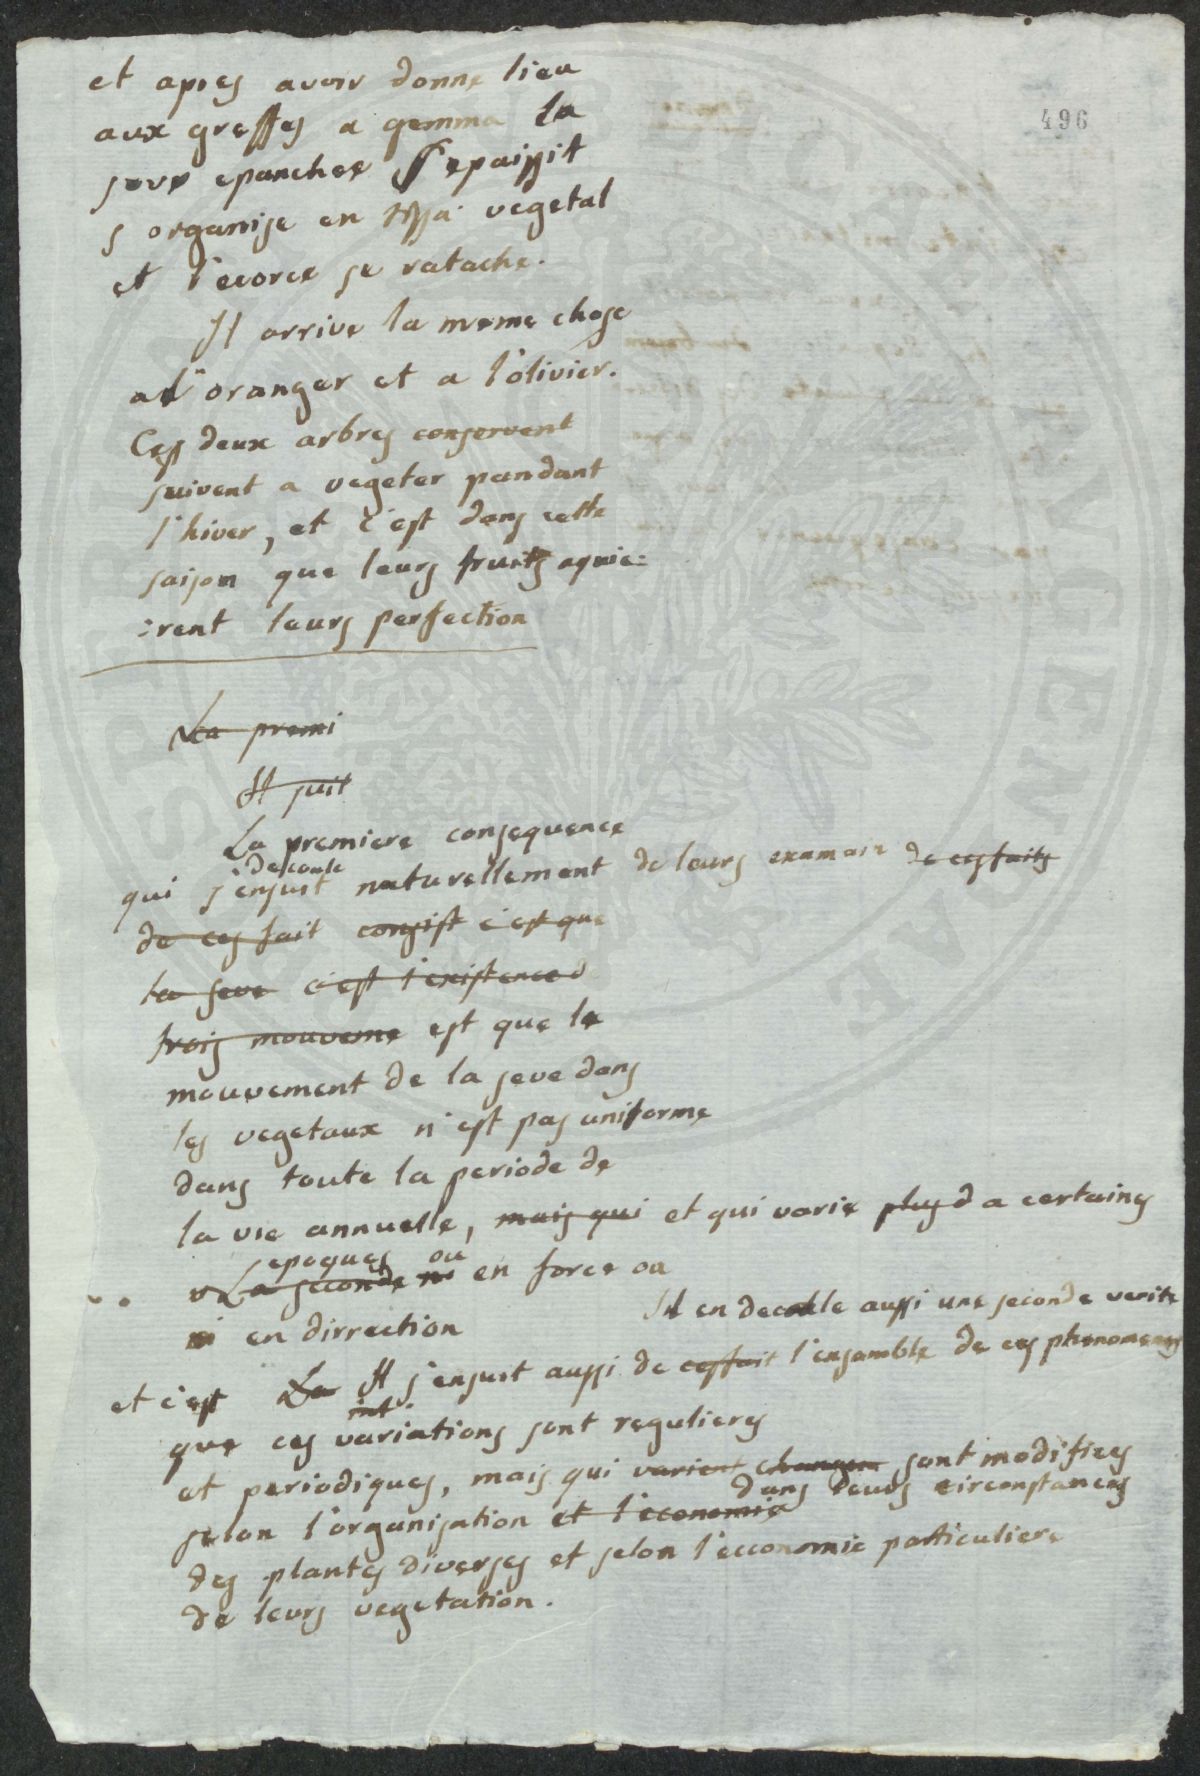 496
et apres avoir donne lieu
aux greffes a gemma la
seve epanchee s'epaissit
s organise en tissu vegetal
et l'ecorce se ratache.
Il arrive la meme chose
a l'oranger et a l'olivier.
Ces deux arbres conservent
suivent a vegeter pandant
l'hiver, et c'est dans cette
saison que leurs fruits aquie:
:rent leurs perfection
La premi
Il suit
La premiere consequence
decoule
qui s'ensuit naturellement de leurs examain de ces faits
de ces fait consist c'est que
la seve c'est l'existence d
trois mouveme est que le
mouvement de la seve dans
les vegetaux n'est pas uniforme
dans toute la periode de
la vie annuelle, mais qui et qui varie plus d a certains
epoques ou
La seconde ni en force ou
ni en dirrection Il en decoule aussi une seconde verite
et c'est La Il s'ensuit aussi de ces fait l'ensamble de ces phenomenes
int.
que ces variations sont regulieres
et periodiques, mais qui varient changen sont modifiees
dans leurs circonstances
selon l'organisation et l'economie
des plantes diverses et selon l'ecconomie particuliere
de leurs vegetation.